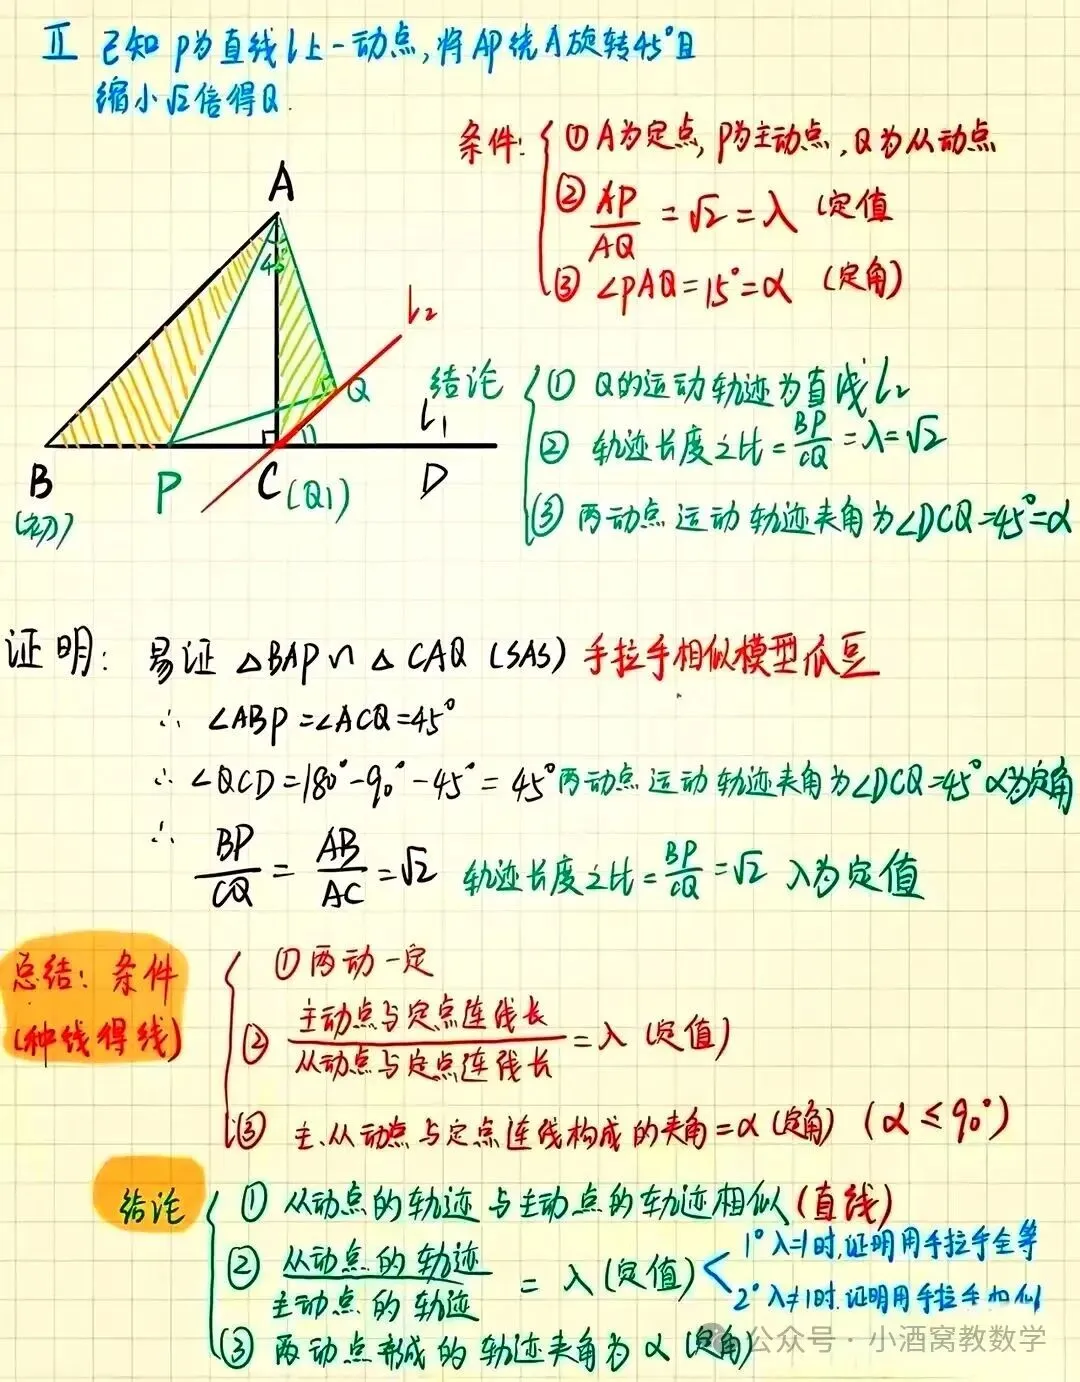 Ⅱ 已知P为直线l上一动点,将AP绕A旋转45°且
缩小√2倍得Q.
条件: ①A为定点,P为主动点,Q为从动点
② AP/AQ = √2 = λ (定值
③ ∠PAQ=15°=α (定角)
A
45°
l₂
Q
l₁
B
(初)
P
C(Q1)
D
结论 ① Q的运动轨迹为直线l₂
② 轨迹长度之比=BP/CQ=λ=√2
③ 两动点运动轨迹夹角为∠DCQ=45°=α
证明: 易证 △BAP∽△CAQ (SAS) 手拉手相似模型瓜豆
∴ ∠ABP=∠ACQ=45°
∴ ∠QCD=180°-90°-45°=45° 两动点运动轨迹夹角为∠DCQ=45° α为定角
∴ BP/CQ = AB/AC = √2 轨迹长度之比=BP/CQ=√2 λ为定值
总结: 条件
(种线得线)
①两动一定
② 主动点与定点连线长/从动点与定点连线长=λ (定值)
③ 主、从动点与定点连线构成的夹角=α(定角) (α≤90°)
结论 ① 从动点的轨迹与主动点的轨迹相似(直线)
② 从动点的轨迹/主动点的轨迹 = λ(定值)
1° λ=1时,证明用手拉手全等
2° λ≠1时.证明用手拉手相似
③ 两动点形成的轨迹夹角为α(定角)
公众号·小酒窝教数学